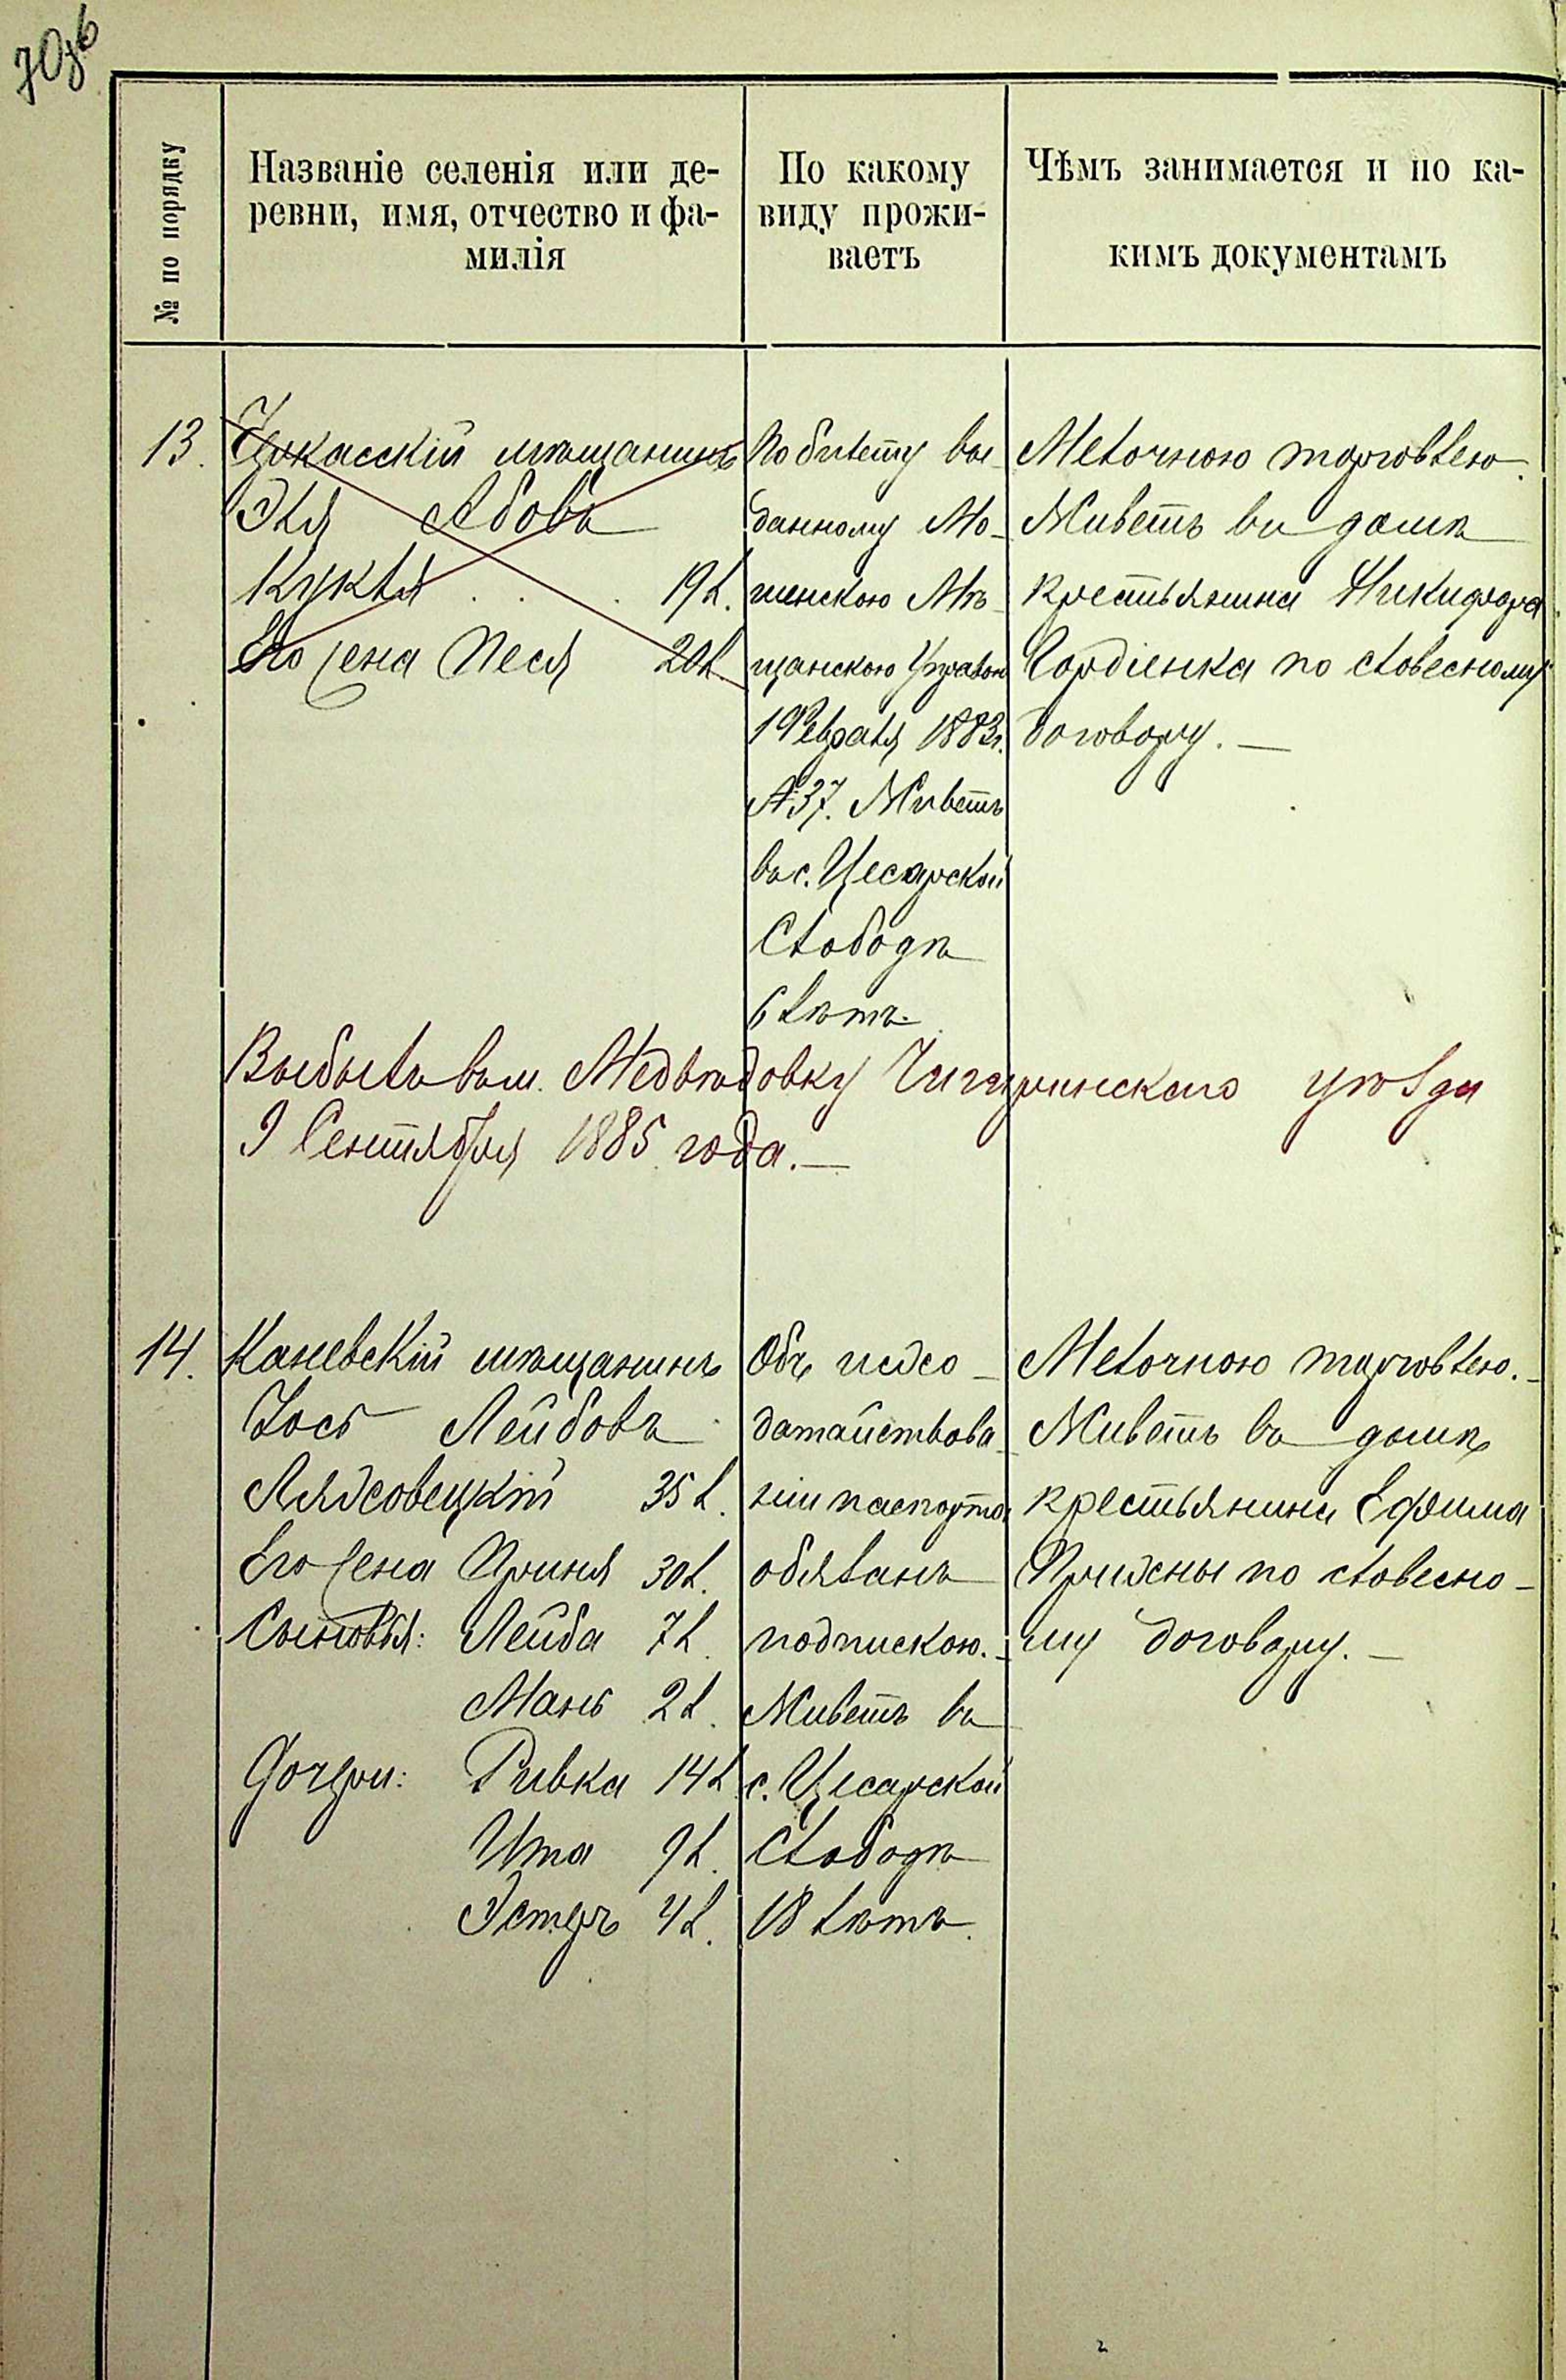 70 об
№ по порядку
Названіе селенія или де-
ревни, имя, отчество и фа-
милія
По какому
виду прожи-
ваетъ
Чѣмъ занимается и по ка-
кимъ документамъ
13.
Черкасскій мѣщанинъ
Эля Абовъ
Кукля . . . 19 л.
Его жена Песя 20 л.
По билету вы-
данному Мо-
шенскою Мѣ-
щанскою Управою
1 Февраля 1883 г.
№ 37. Живетъ
въ с. Цесарской
Слободѣ
6 лѣтъ.
Мелочною торговлею.
Живетъ въ домѣ
крестьянина Никифора
Гордіенка по словесному
договору. —
Выбылъ въ м. Медвѣдовку Чигиринскаго уѣзда
9 Сентября 1885 года. —
14.
Каневскій мѣщанинъ
Іось Лейбовъ
Ляховецкій 35 л.
Его жена Приня 30 л.
Сыновья: Лейба 7 л.
Мань 2 л.
Дочери: Ривка 14 л.
Ита 9 л.
Эстеръ 4 л.
Объ исхо-
датайствова-
ніи паспорта
обязанъ
подпискою. —
Живетъ въ
с. Цесарской
Слободѣ
18 лѣтъ.
Мелочною торговлею. —
Живетъ въ домѣ
крестьянина Ефима
по словесно-
му договору. —